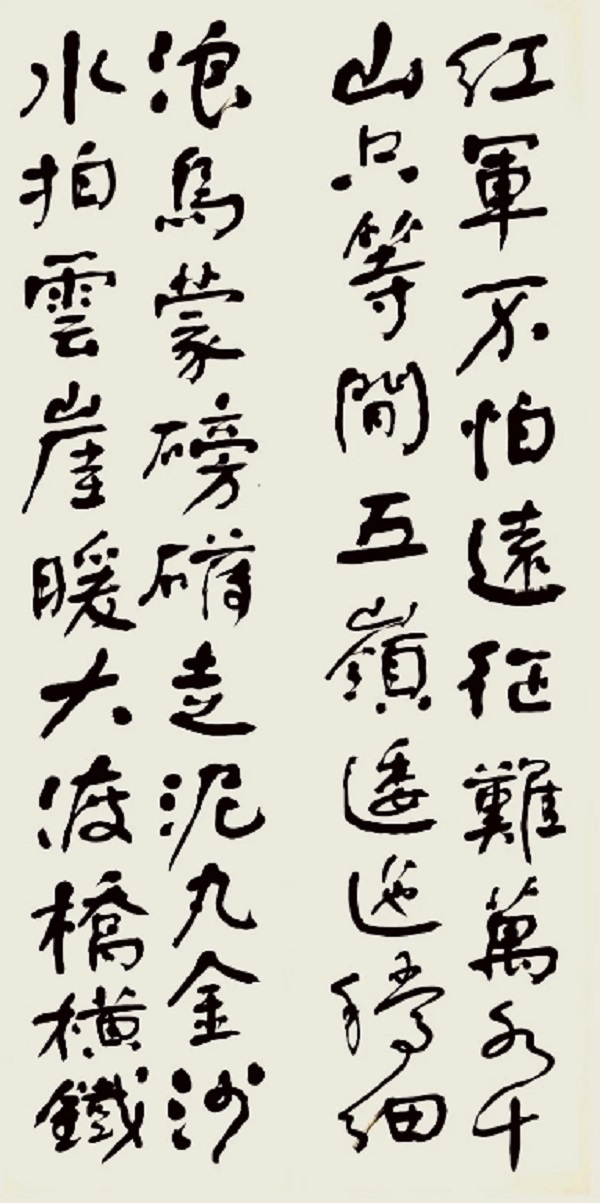 紅軍不怕遠征難萬水千
山只等閒五嶺逶迤騰細
浪烏蒙磅礴走泥丸金沙
水拍雲崖暖大渡橋橫鐵